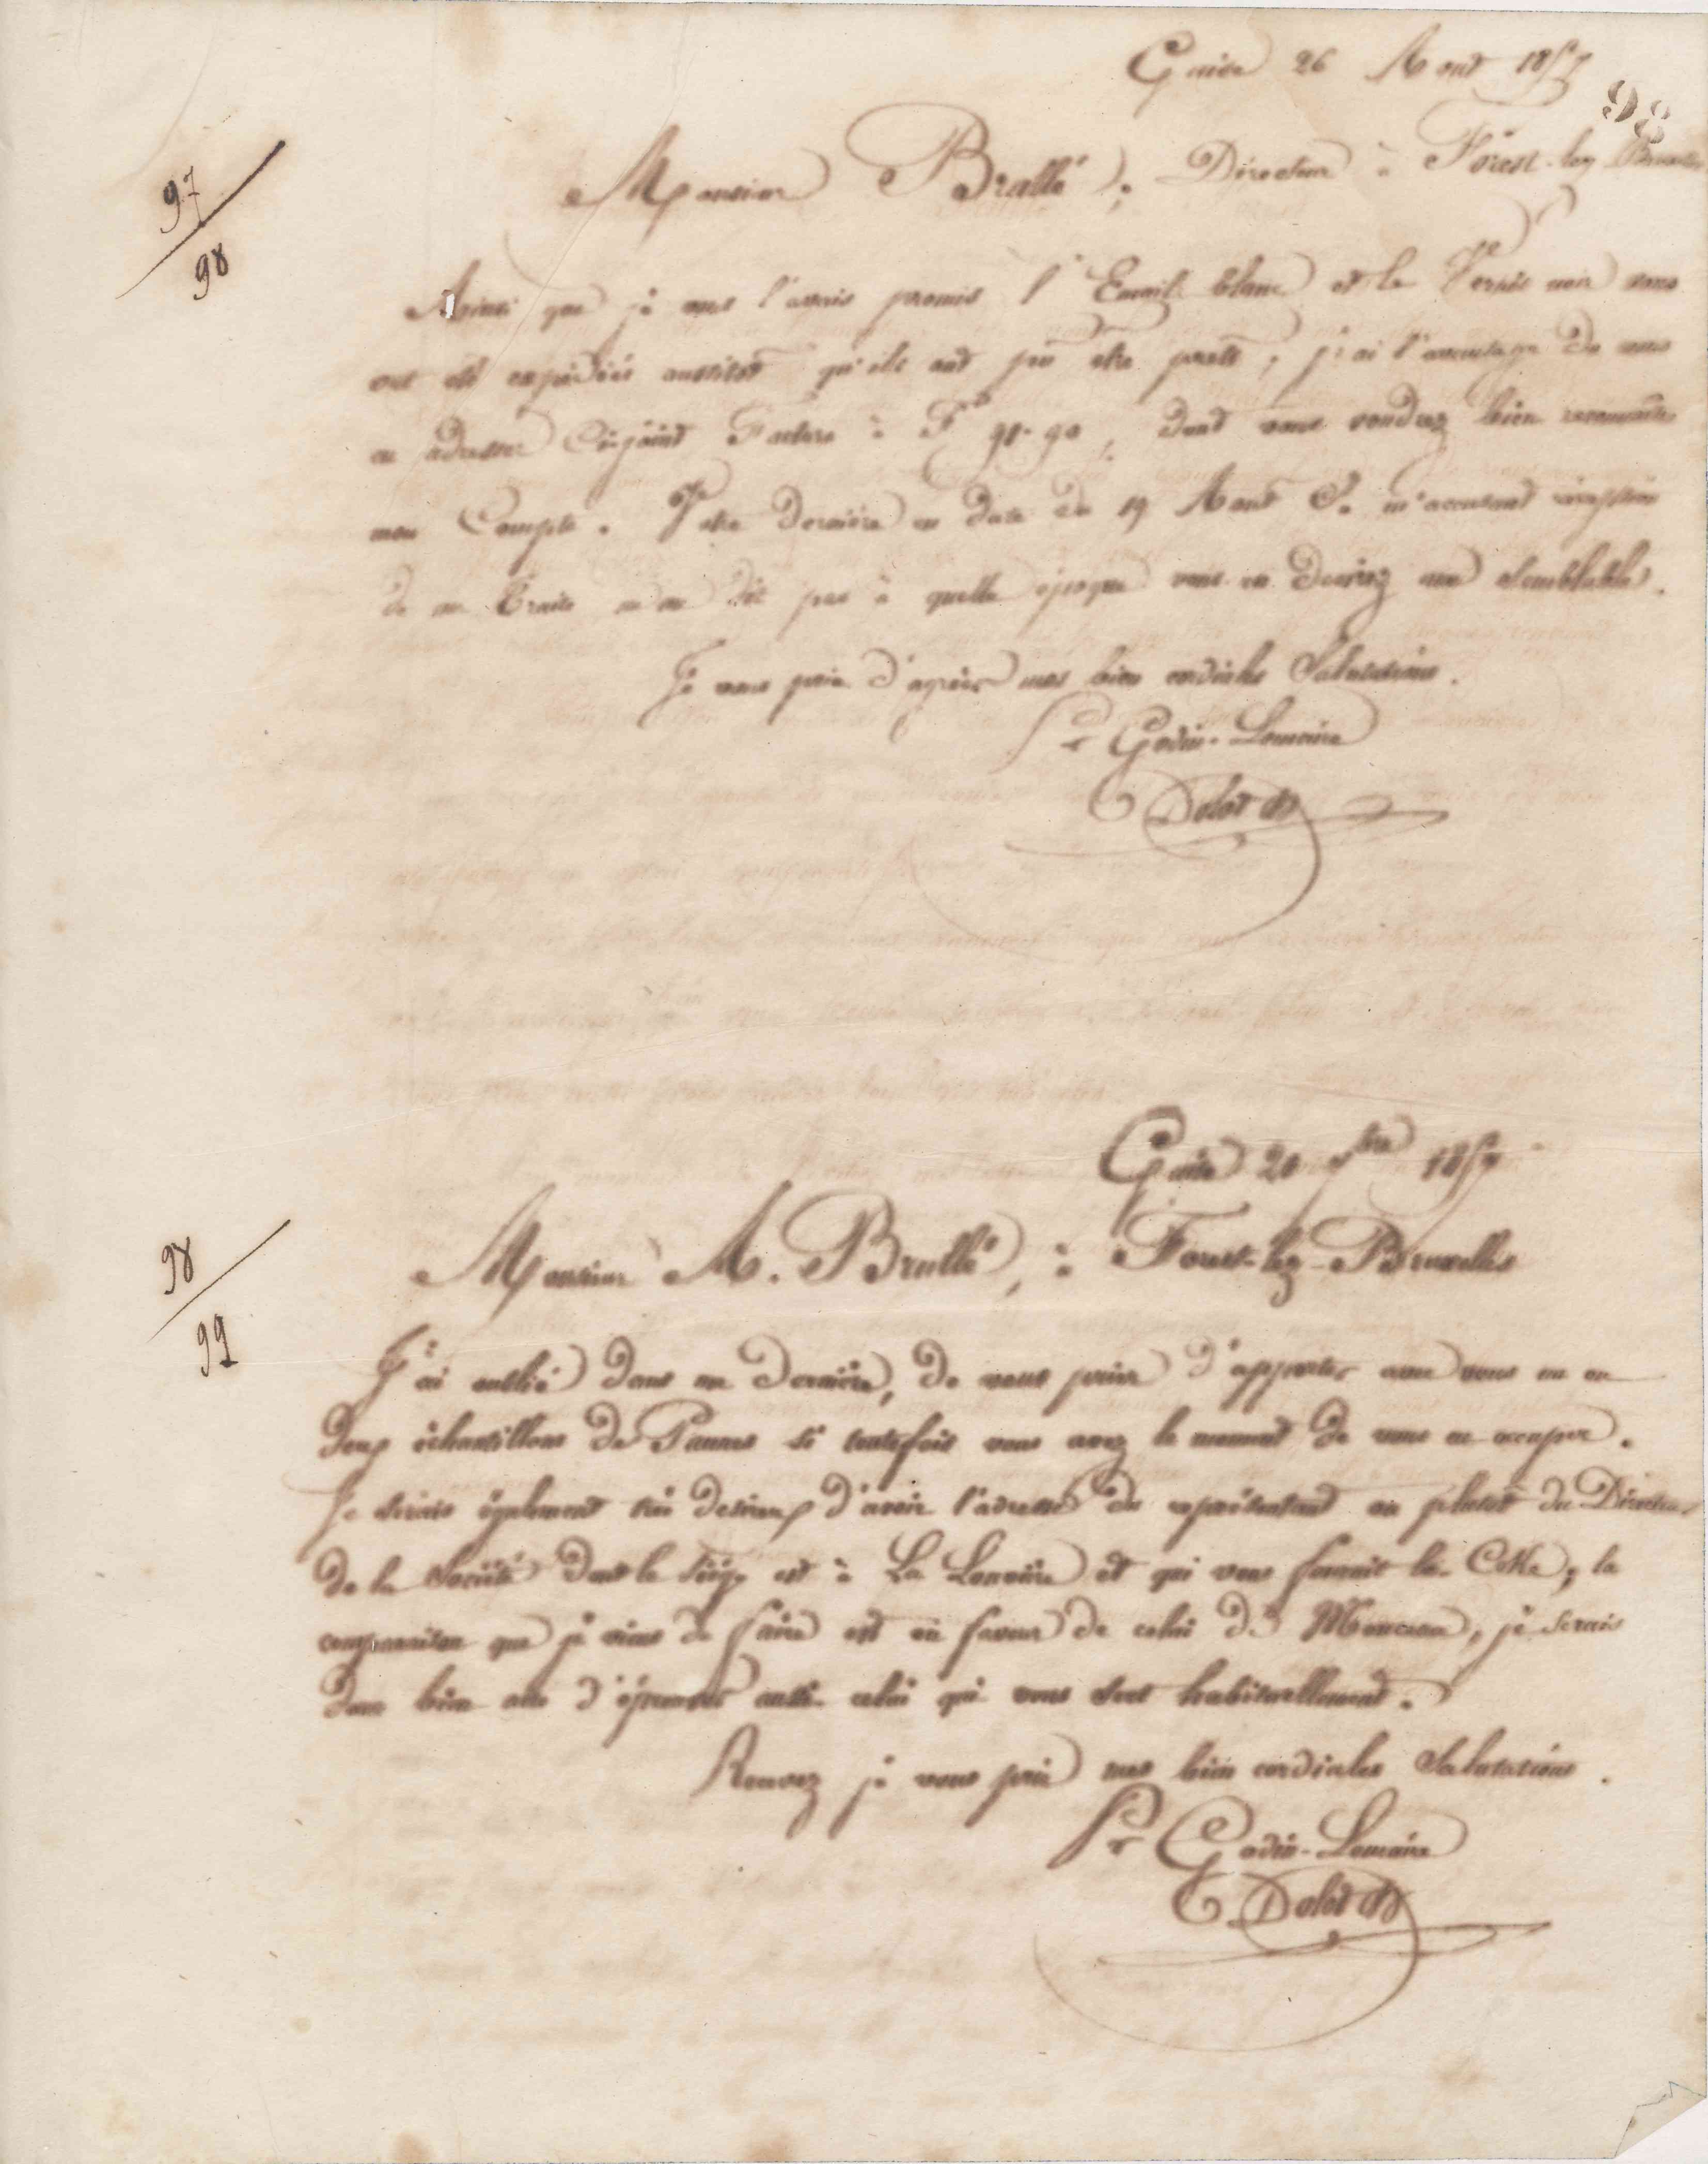 Guise 26 Aout 1857
98
Monsieur Brullé, Directeur à Forest-lez Bruxelles
97
98
Ainsi que je vous l'avais promis l'Email blanc et le Vernis noir vous
ont été expédiés aussitôt qu'ils ont pu être prets, j'ai l'avantage de vous
en adresser Cijoint Facture à F 98.90, dont vous voudrez bien reconnaitre
mon Compte. Votre dernière en date du 19 Aout Ct. m'accusant réception
de ma Traite ne me dit pas à quelle époque vous en desirez une semblable.
Je vous prie d'agréer mes bien cordiales Salutations.
Pr Godin-Lemaire
Delot
Guise 21 7bre 1857
98
99
Monsieur A. Brullé, à Forest-lez-Bruxelles
J'ai oublié dans ma dernière, de vous prier d'apporter avec vous un ou
deux échantillons de Pannes si toutefois vous avez le moment de vous en occuper.
Je serais également très desireux d'avoir l'adresse du représentant ou plutôt du Directeur
de la Société dont le siége est à La Louvière et qui vous fournit le Coke, la
comparaison que je viens de faire est en faveur de celui de Monceau, je serais
donc bien aise d'éprouver aussi celui qui vous sert habituellement.
Recevez je vous prie mes bien cordiales Salutations.
Pr Godin-Lemaire
Delot